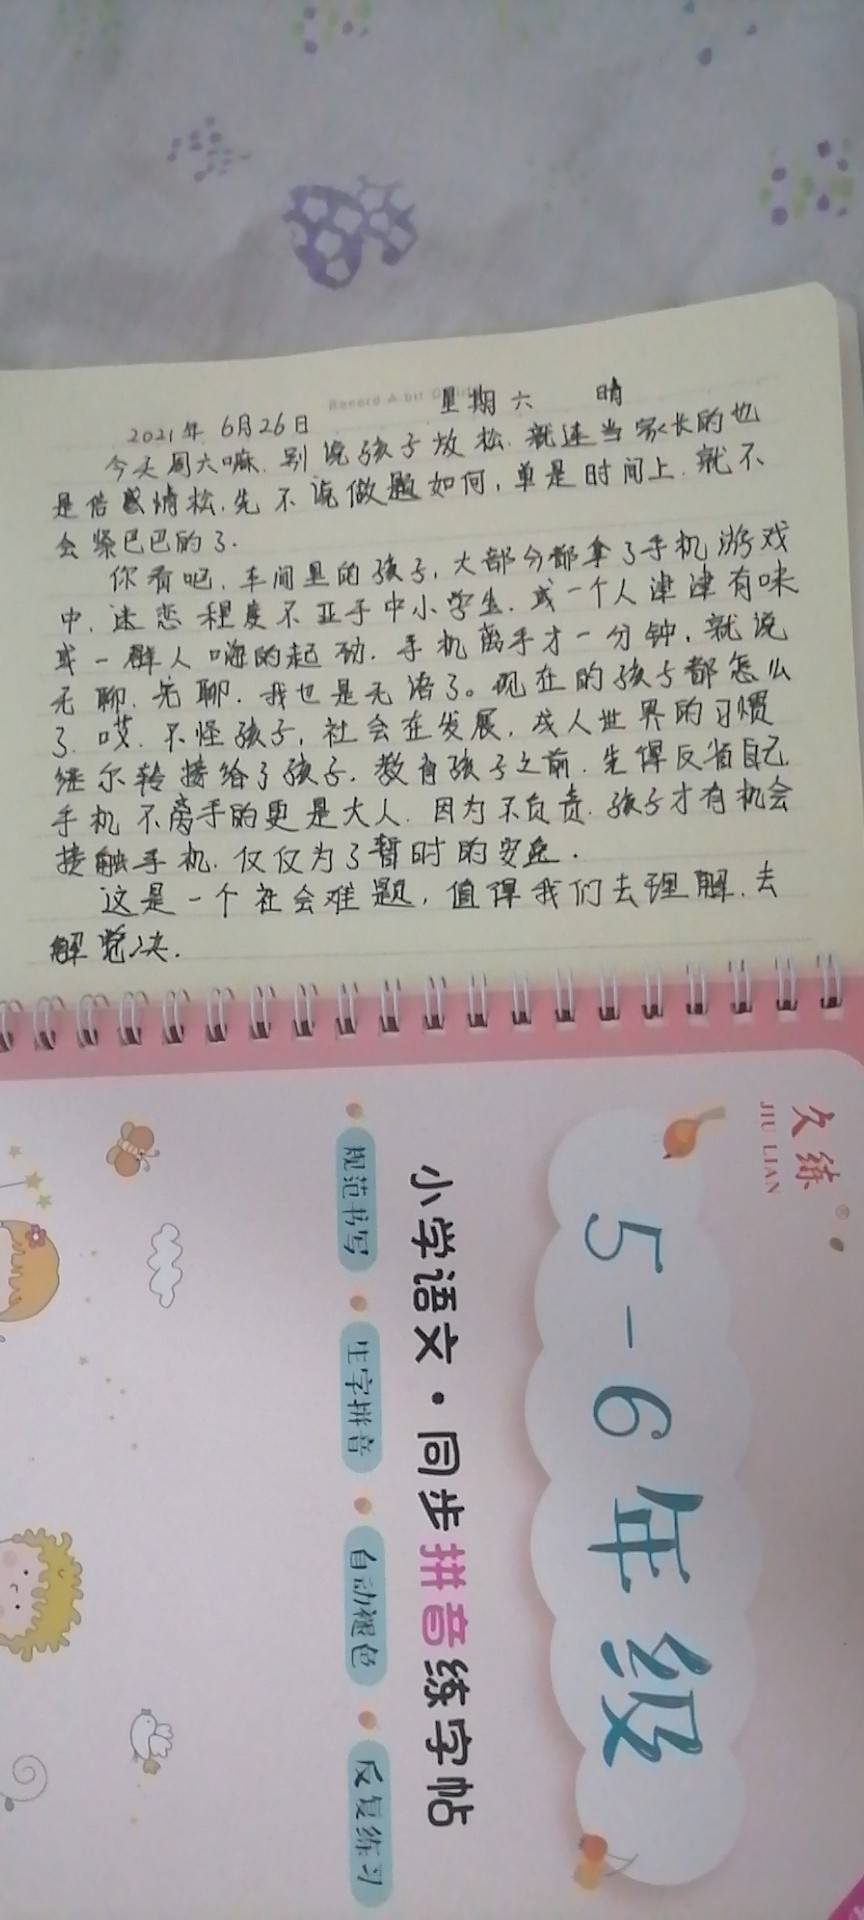 Record A bit
2021年 6月26日 星期六 晴
今天周六嘛.别说孩子放松.就连当家长的也
是倍感情松.先不说做题如何,单是时间上.就不
会紧巴巴的了.
你看吧.车间里的孩子,大部分都拿了手机游戏
中.迷恋程度不亚于中小学生.或一个人津津有味
或一群人嗨的起劲.手机离手才一分钟,就说
无聊.无聊.我也是无语了。现在的孩子都怎么
了.哎.不怪孩子,社会在发展.成人世界的习惯
继尔转接给了孩子.教育孩子之前.先得反省自己
手机不离手的更是大人.因为不负责.孩子才有机会
接触手机.仅仅为了暂时的安逸.
这是一个社会难题,值得我们去理解.去
解决.
久练®
JIU LIAN
5-6年级
小学语文·同步拼音练字帖
规范书写 生字拼音 自动褪色 反复练习